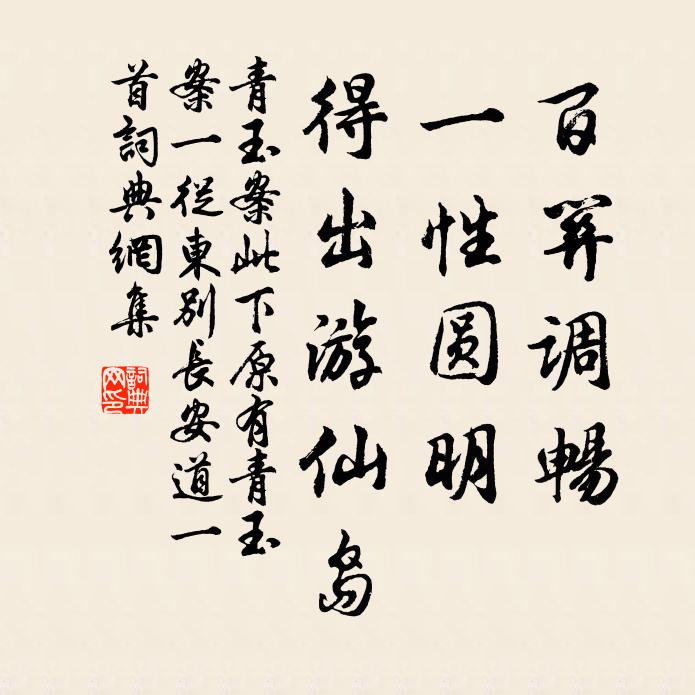 百关调暢
一性圆明
得出游仙岛
青玉案此下原有青玉
案一從東别長安道一
首詞典網集
詞典网印